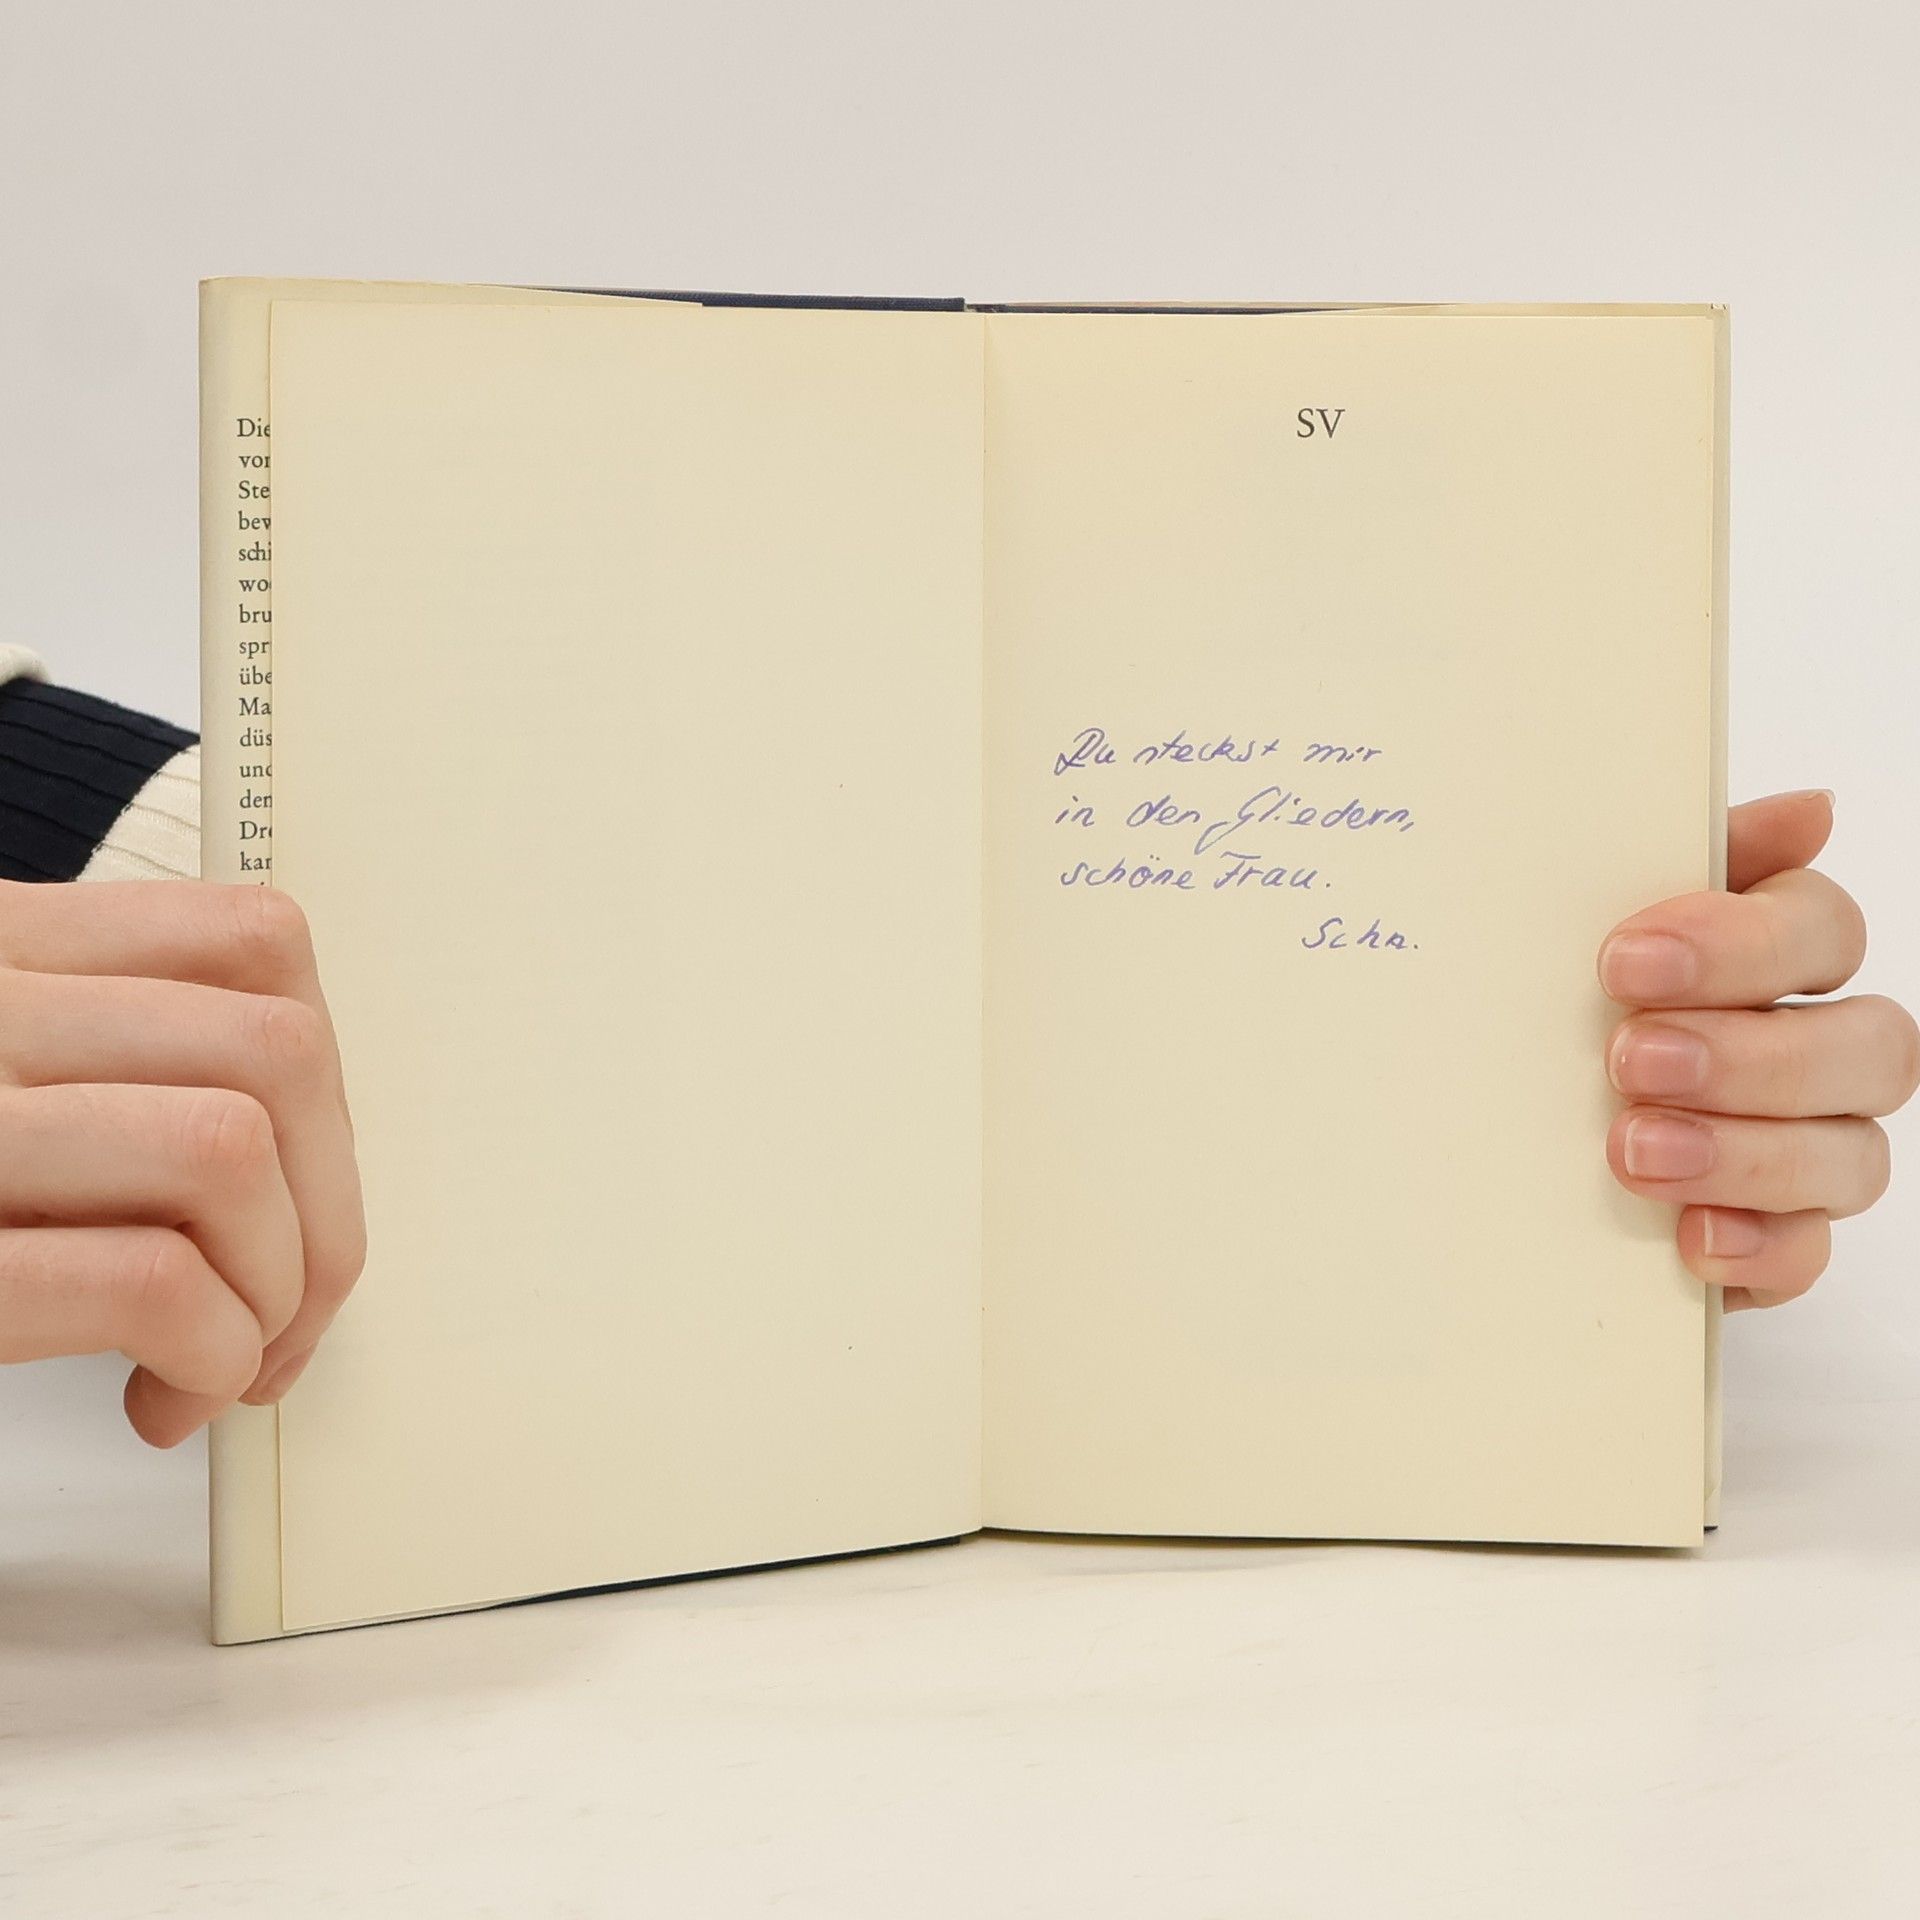 Die
vor
Ste
bew
schi
wo
bru
spr
übe
Ma
düs
und
der
Dre
kan
SV
Du steckst mir
in den Gliedern,
schöne Frau.
Schn.